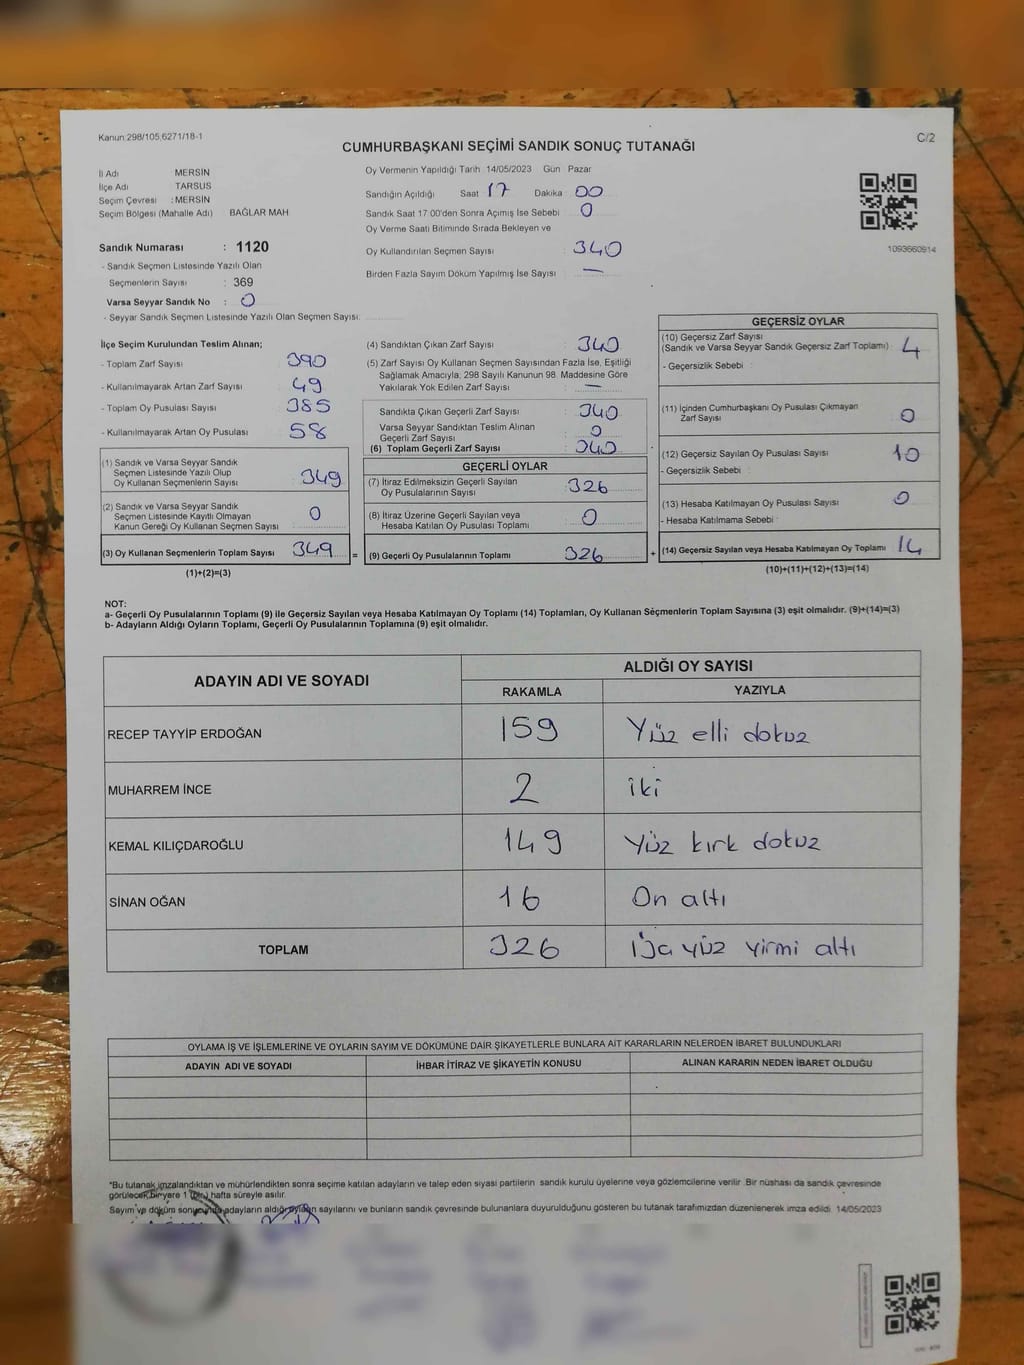 Kanun:298/105,6271/18-1
C/2
CUMHURBAŞKANI SEÇİMİ SANDIK SONUÇ TUTANAĞI
İl Adı MERSİN
İlçe Adı TARSUS
Seçim Çevresi : MERSİN
Seçim Bölgesi (Mahalle Adı) BAĞLAR MAH
Sandık Numarası : 1120
- Sandık Seçmen Listesinde Yazılı Olan
Seçmenlerin Sayısı : 369
Varsa Seyyar Sandık No : 0
- Seyyar Sandık Seçmen Listesinde Yazılı Olan Seçmen Sayısı:
Oy Vermenin Yapıldığı Tarih 14/05/2023 Gün Pazar
Sandığın Açıldığı Saat 17 Dakika 00
Sandık Saat 17:00'den Sonra Açımış İse Sebebi : 0
Oy Verme Saati Bitiminde Sırada Bekleyen ve
Oy Kullandırılan Seçmen Sayısı : 340
Birden Fazla Sayım Döküm Yapılmış İse Sayısı : —
1093660914
İlçe Seçim Kurulundan Teslim Alınan;
- Toplam Zarf Sayısı : 390
- Kullanılmayarak Artan Zarf Sayısı : 49
- Toplam Oy Pusulası Sayısı : 385
- Kullanılmayarak Artan Oy Pusulası : 58
(1) Sandık ve Varsa Seyyar Sandık
Seçmen Listesinde Yazılı Olup
Oy Kullanan Seçmenlerin Sayısı : 349
(2) Sandık ve Varsa Seyyar Sandık
Seçmen Listesinde Kayıtlı Olmayan
Kanun Gereği Oy Kullanan Seçmen Sayısı : 0
(3) Oy Kullanan Seçmenlerin Toplam Sayısı : 349 =
(1)+(2)=(3)
(4) Sandıktan Çıkan Zarf Sayısı : 340
(5) Zarf Sayısı Oy Kullanan Seçmen Sayısından Fazla İse, Eşitliği
Sağlamak Amacıyla; 298 Sayılı Kanunun 98. Maddesine Göre
Yakılarak Yok Edilen Zarf Sayısı : —
Sandıkta Çıkan Geçerli Zarf Sayısı : 340
Varsa Seyyar Sandıktan Teslim Alınan
Geçerli Zarf Sayısı : 0
(6) Toplam Geçerli Zarf Sayısı : 340
GEÇERLİ OYLAR
(7) İtiraz Edilmeksizin Geçerli Sayılan
Oy Pusulalarının Sayısı : 326
(8) İtiraz Üzerine Geçerli Sayılan veya
Hesaba Katılan Oy Pusulası Toplamı : 0
(9) Geçerli Oy Pusulalarının Toplamı : 326 +
GEÇERSİZ OYLAR
(10) Geçersiz Zarf Sayısı
(Sandık ve Varsa Seyyar Sandık Geçersiz Zarf Toplamı) : 4
- Geçersizlik Sebebi :
(11) İçinden Cumhurbaşkanı Oy Pusulası Çıkmayan
Zarf Sayısı : 0
(12) Geçersiz Sayılan Oy Pusulası Sayısı : 10
- Geçersizlik Sebebi :
(13) Hesaba Katılmayan Oy Pusulası Sayısı : 0
- Hesaba Katılmama Sebebi :
(14) Geçersiz Sayılan veya Hesaba Katılmayan Oy Toplamı : 14
(10)+(11)+(12)+(13)=(14)
NOT:
a- Geçerli Oy Pusulalarının Toplamı (9) ile Geçersiz Sayılan veya Hesaba Katılmayan Oy Toplamı (14) Toplamları, Oy Kullanan Seçmenlerin Toplam Sayısına (3) eşit olmalıdır. (9)+(14)=(3)
b- Adayların Aldığı Oyların Toplamı, Geçerli Oy Pusulalarının Toplamına (9) eşit olmalıdır.
ADAYIN ADI VE SOYADI ALDIĞI OY SAYISI
RAKAMLA YAZIYLA
RECEP TAYYİP ERDOĞAN 159 Yüz elli dokuz
MUHARREM İNCE 2 iki
KEMAL KILIÇDAROĞLU 149 yüz kırk dokuz
SİNAN OĞAN 16 On altı
TOPLAM 326 yüz yirmi altı
OYLAMA İŞ VE İŞLEMLERİNE VE OYLARIN SAYIM VE DÖKÜMÜNE DAİR ŞİKAYETLERLE BUNLARA AİT KARARLARIN NELERDEN İBARET BULUNDUKLARI
ADAYIN ADI VE SOYADI İHBAR İTİRAZ VE ŞİKAYETİN KONUSU ALINAN KARARIN NEDEN İBARET OLDUĞU
*Bu tutanak imzalandıktan ve mühürlendikten sonra seçime katılan adayların ve talep eden siyasi partilerin sandık kurulu üyelerine veya gözlemcilerine verilir. Bir nüshası da sandık çevresinde
görülecek bir yere 1 (bir) hafta süreyle asılır.
Sayım ve döküm sonucunda adayların aldığı oyların sayılarını ve bunların sandık çevresinde bulunanlara duyurulduğunu gösteren bu tutanak tarafımızdan düzenlenerek imza edildi. 14/05/2023